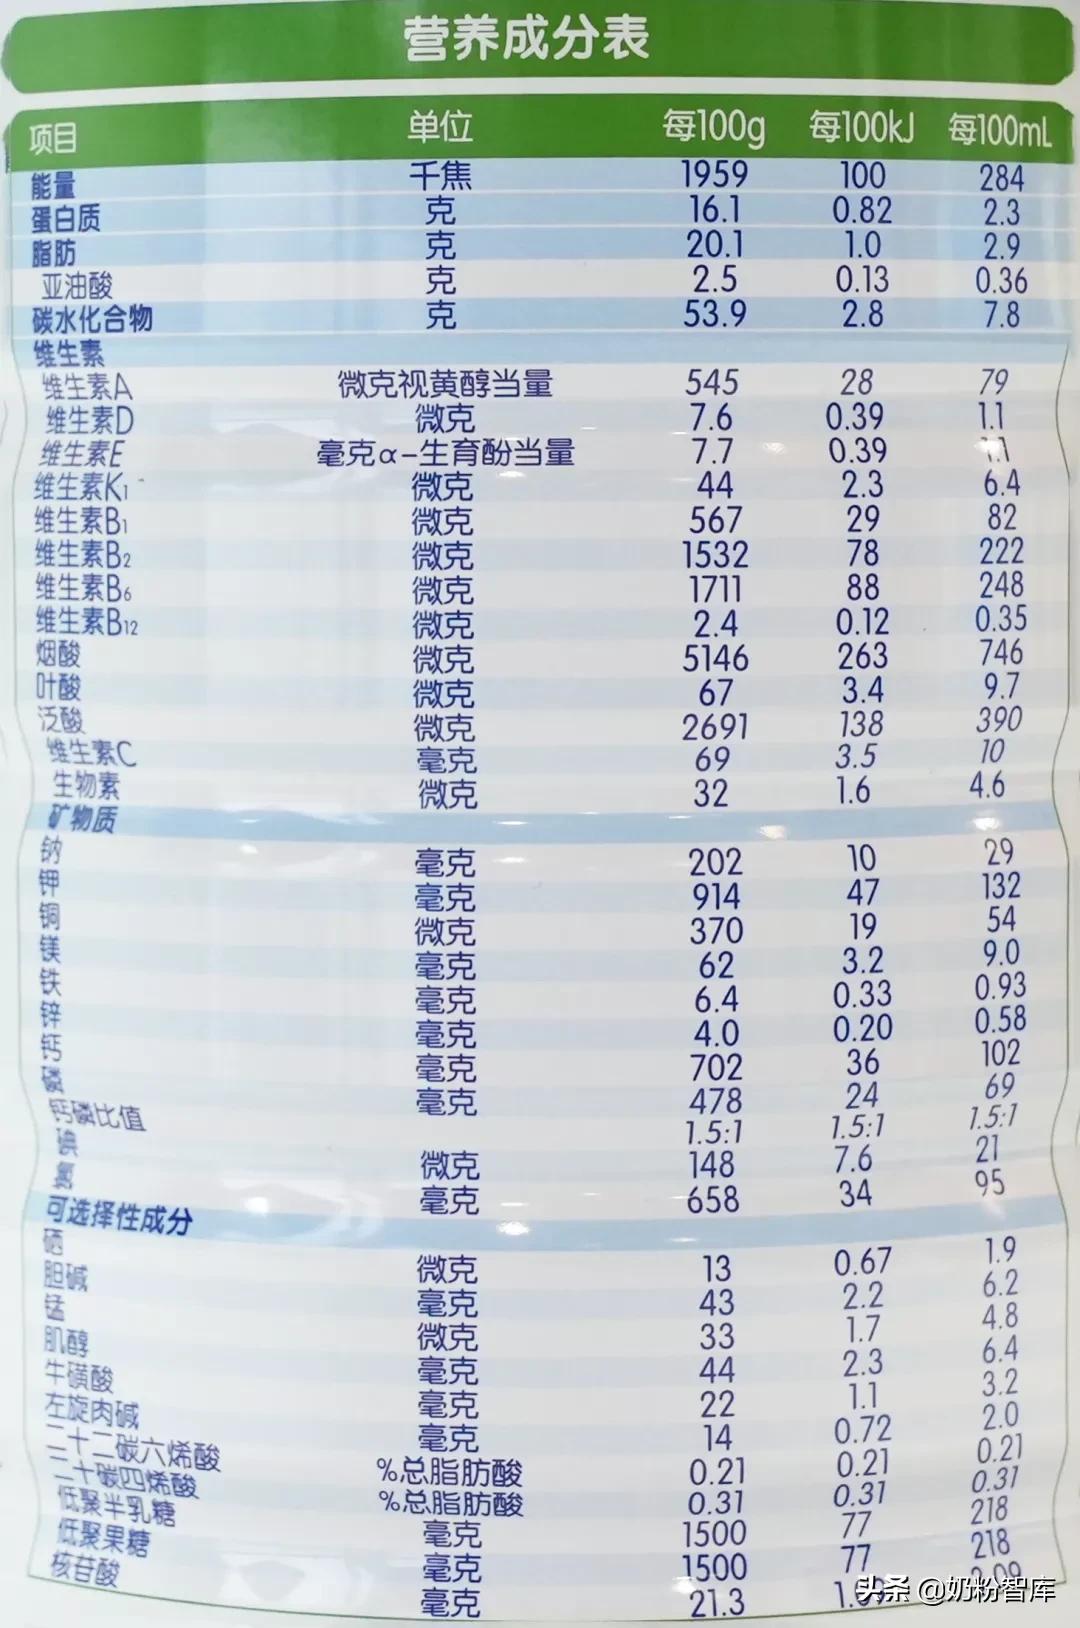 营养成分表
项目 单位 每100g 每100kJ 每100mL
能量 千焦 1959 100 284
蛋白质 克 16.1 0.82 2.3
脂肪 克 20.1 1.0 2.9
亚油酸 克 2.5 0.13 0.36
碳水化合物 克 53.9 2.8 7.8
维生素
维生素A 微克视黄醇当量 545 28 79
维生素D 微克 7.6 0.39 1.1
维生素E 毫克α-生育酚当量 7.7 0.39 1.1
维生素K₁ 微克 44 2.3 6.4
维生素B₁ 微克 567 29 82
维生素B₂ 微克 1532 78 222
维生素B₆ 微克 1711 88 248
维生素B₁₂ 微克 2.4 0.12 0.35
烟酸 微克 5146 263 746
叶酸 微克 67 3.4 9.7
泛酸 微克 2691 138 390
维生素C 毫克 69 3.5 10
生物素 微克 32 1.6 4.6
矿物质
钠 毫克 202 10 29
钾 毫克 914 47 132
铜 微克 370 19 54
镁 毫克 62 3.2 9.0
铁 毫克 6.4 0.33 0.93
锌 毫克 4.0 0.20 0.58
钙 毫克 702 36 102
磷 毫克 478 24 69
钙磷比值 1.5:1 1.5:1 1.5:1
碘 微克 148 7.6 21
氯 毫克 658 34 95
可选择性成分
硒 微克 13 0.67 1.9
胆碱 毫克 43 2.2 6.2
锰 微克 33 1.7 4.8
肌醇 毫克 44 2.3 6.4
牛磺酸 毫克 22 1.1 3.2
左旋肉碱 毫克 14 0.72 2.0
二十二碳六烯酸 %总脂肪酸 0.21 0.21 0.21
二十碳四烯酸 %总脂肪酸 0.31 0.31 0.31
低聚半乳糖 毫克 1500 77 218
低聚果糖 毫克 1500 77 218
核苷酸 毫克 21.3
头条 @奶粉智库